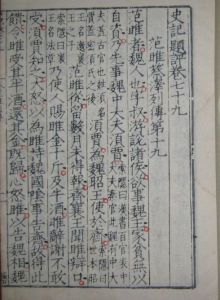 史記題評卷七十九
范雎蔡澤列傳第十九
范雎者魏人也字叔游說諸侯欲事魏王家貧無以
自資乃先事魏中大夫須賈
須賈為魏昭王使於齊
范雎從留數月未得報齊襄王聞雎辯口
乃使人賜雎金十斤及牛酒雎辭謝不敢
受須賈知之大怒以為雎持魏國陰事告齊故得此
饋令雎受其牛酒還其金既歸心怒雎以告魏相魏